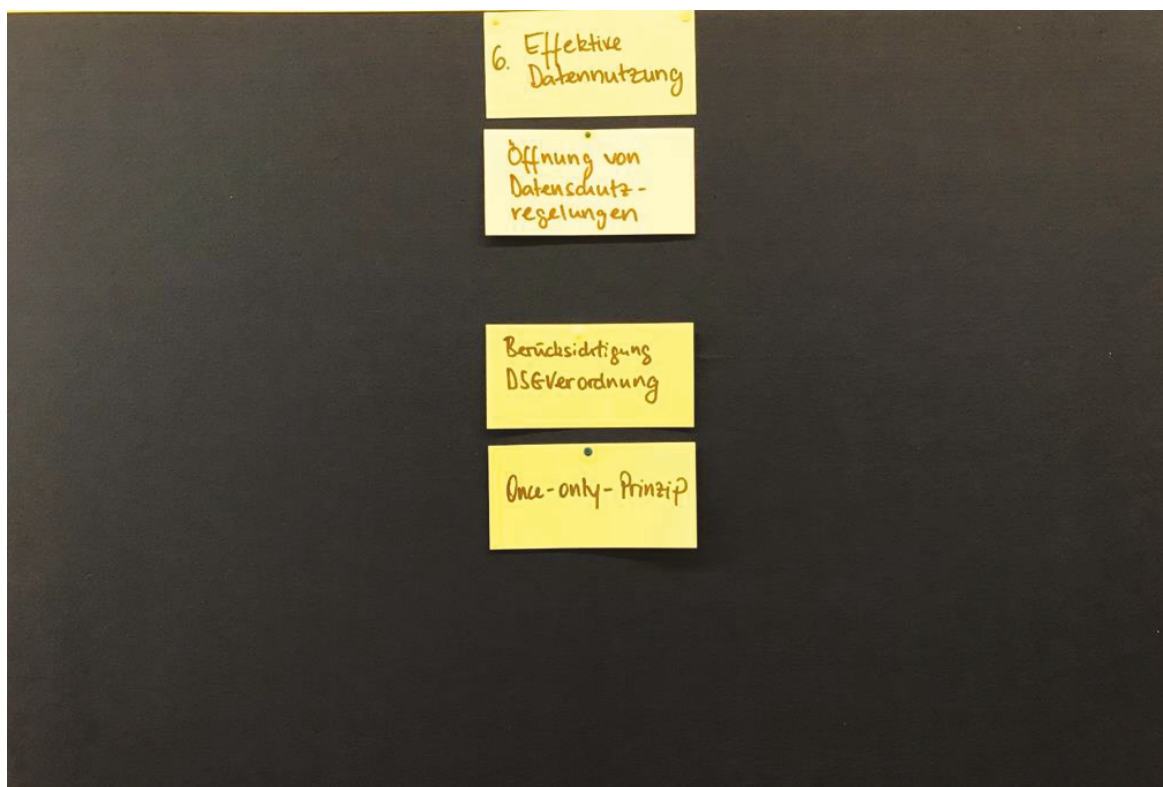 6. Effektive
Datennutzung
Öffnung von
Datenschutz-
regelungen
Berücksichtigung
DSGVerordnung
Once-only-Prinzip